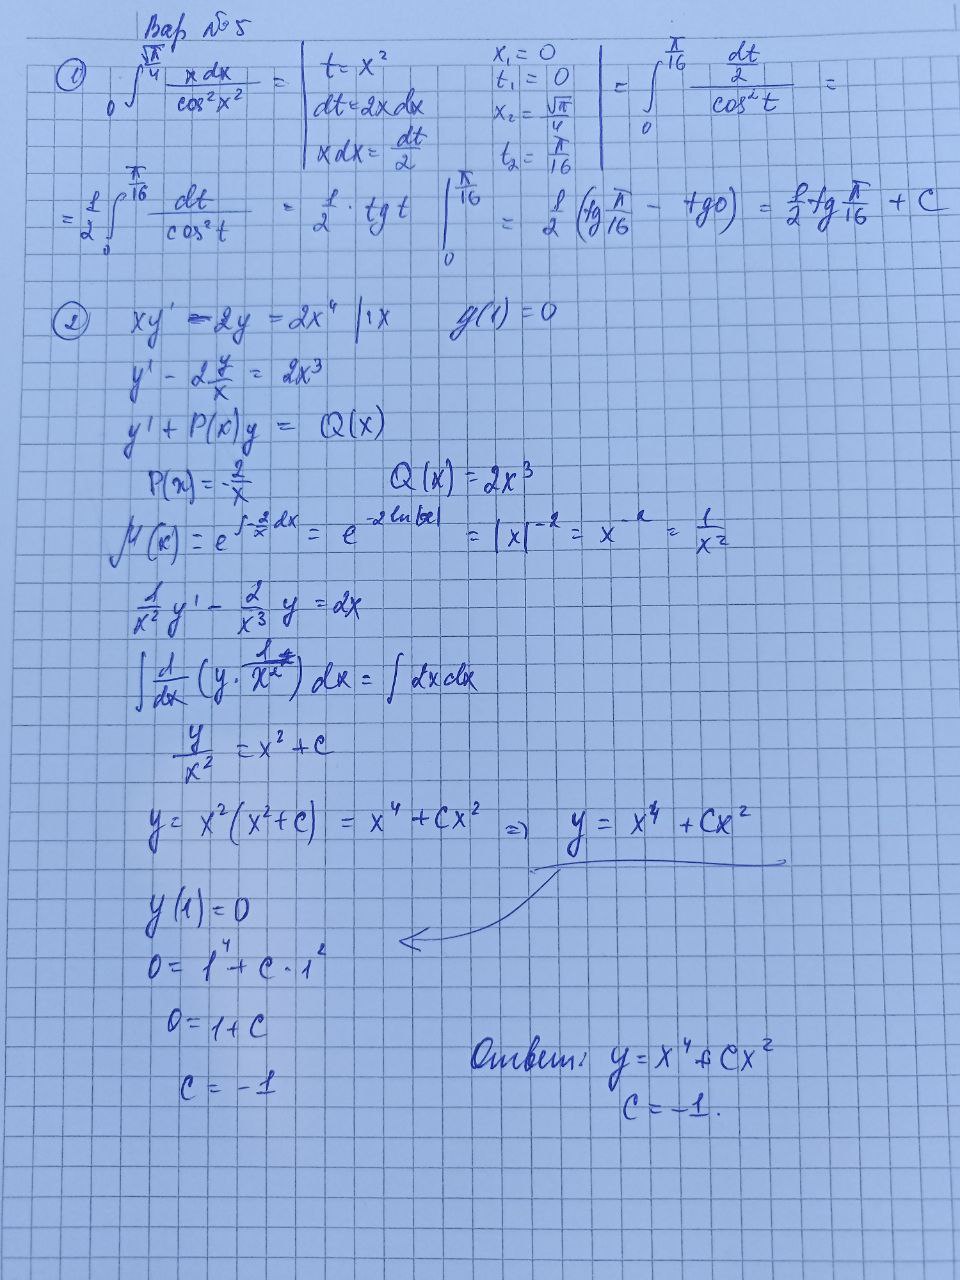 Вар №5
① ∫₀^(√π/4) x dx / cos²x² = | t = x² dt = 2x dx x dx = dt/2 x₁ = 0 t₁ = 0 x₂ = √π/4 t₂ = π/16 | = ∫₀^(π/16) (dt/2) / cos²t =
= 1/2 ∫₀^(π/16) dt / cos²t = 1/2 · tg t |₀^(π/16) = 1/2 (tg π/16 − tg0) = 1/2 tg π/16 + C
② xy' − 2y = 2x⁴ |:x y(1) = 0
y' − 2 y/x = 2x³
y' + P(x)y = Q(x)
P(x) = −2/x Q(x) = 2x³
μ(x) = e^(∫−2/x dx) = e^(−2ln|x|) = |x|⁻² = x⁻² = 1/x²
1/x² y' − 2/x³ y = 2x
∫ d/dx (y · 1/x²) dx = ∫ 2x dx
y/x² = x² + C
y = x²(x² + C) = x⁴ + Cx² ⇒ y = x⁴ + Cx²
y(1) = 0
0 = 1⁴ + C · 1²
0 = 1 + C
C = −1
Ответ: y = x⁴ + Cx²
C = −1.